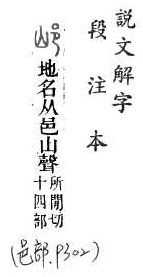 說文解字
段注本
地名从邑山聲
所閒切
十四部
(邑部.P302)